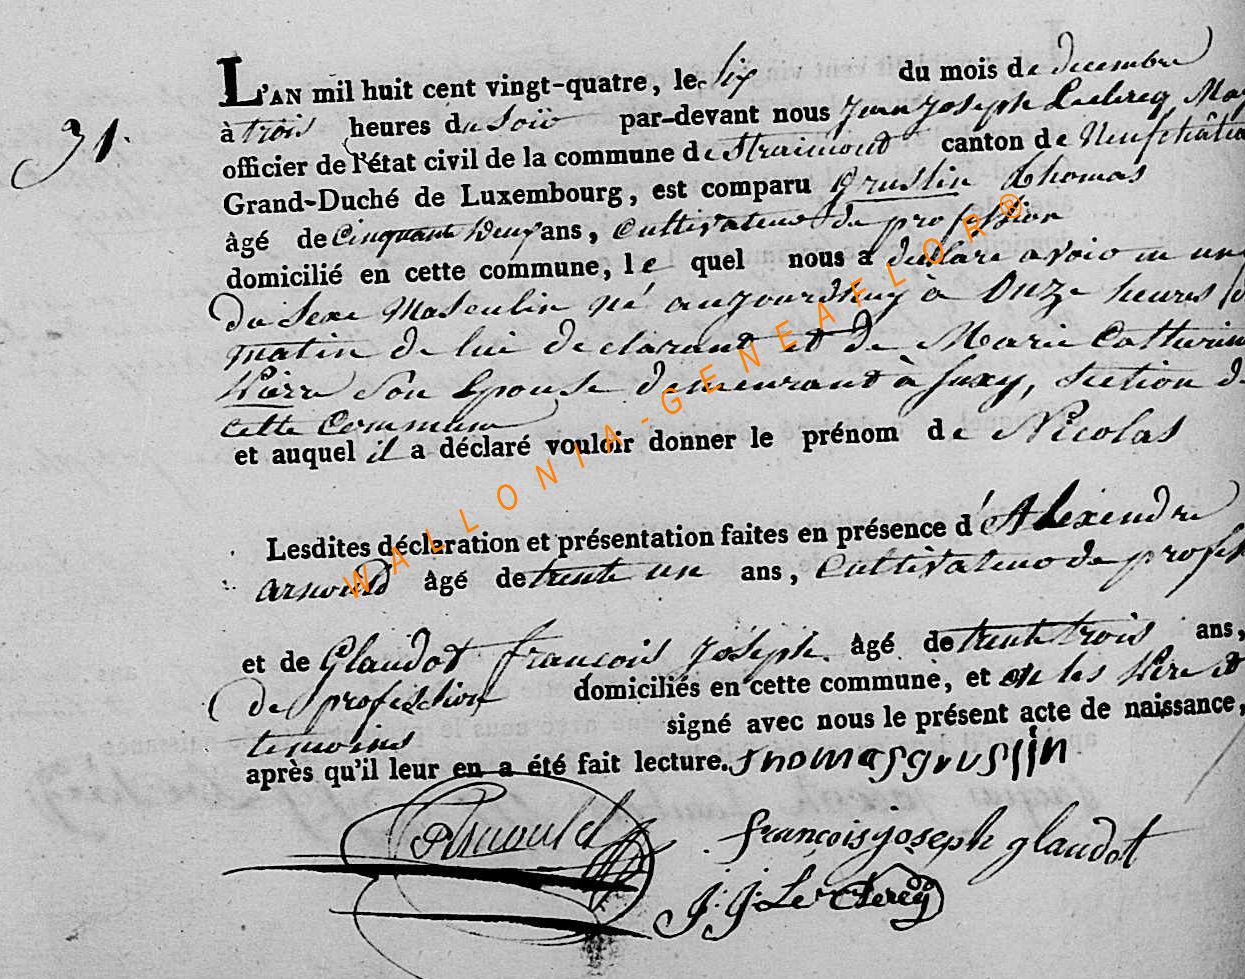 L'AN mil huit cent vingt-quatre, le six du mois de decembre
31.
à trois heures du soir par-devant nous jean joseph Leclercq, May
officier de l'état civil de la commune de Straimont canton de Neufchâtea
Grand-Duché de Luxembourg, est comparu Gruslin Thomas
âgé de cinquante deux ans, cultivateur de profession
domicilié en cette commune, le quel nous a déclaré avoir eu un
du Sexe Masculin né aujourdhuy à Onze heures
matin de lui declarant et de Marie Catherin
Pierre Son Epouse demeurant à Suxy, section d
cette Commune
et auquel il a déclaré vouloir donner le prénom de Nicolas
Lesdites déclaration et présentation faites en présence d'Alexendre
arnould âgé de trente un ans, cultivateur de profes
et de Glaudot françois joseph âgé de trente trois ans,
de profession domiciliés en cette commune, et on les Père et
temoins signé avec nous le présent acte de naissance,
après qu'il leur en a été fait lecture. Thomas gruslin
Arnould
françois joseph glaudot
J: J: Le Clercq
WALLONIA-GENEAFLOR®